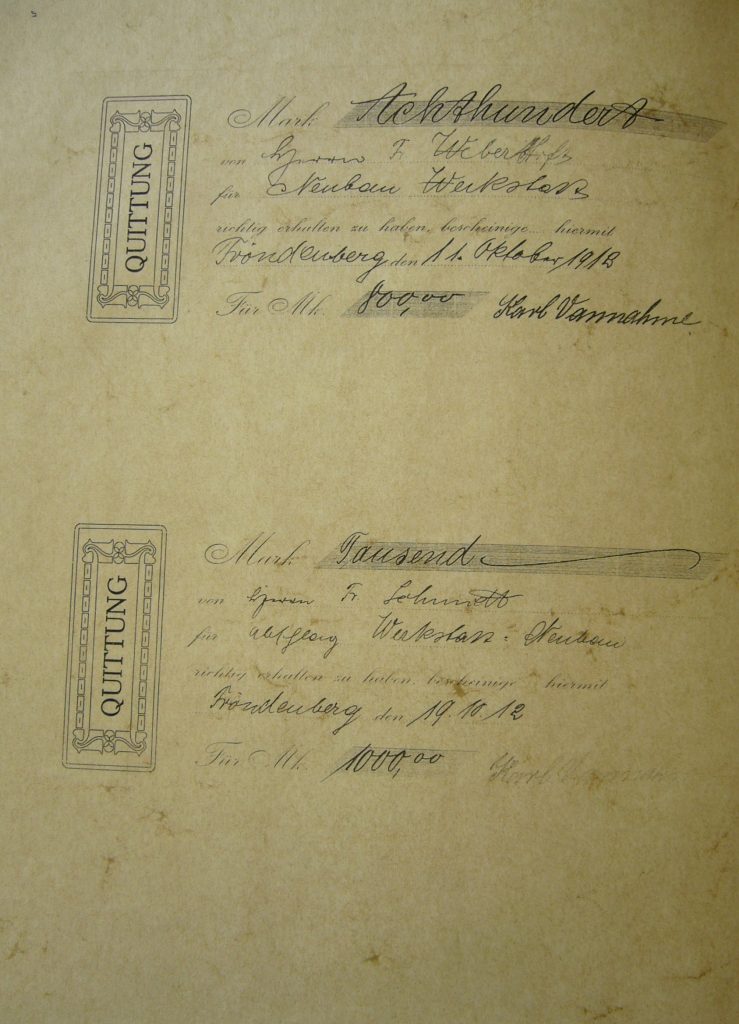 QUITTUNG
Mark Achthundert
von Herrn F. Weber
für Neubau Werkstatt
richtig erhalten zu haben, bescheinige hiermit
Fröndenberg den 11. Oktober 1912
Für Mk. 800,00 Karl Vannahme
QUITTUNG
Mark Tausend
von Herrn Fr. Schmidt
für Werkstatt-Neubau
richtig erhalten zu haben, bescheinige hiermit
Fröndenberg den 19.10.12
Für Mk. 1000,00 Karl